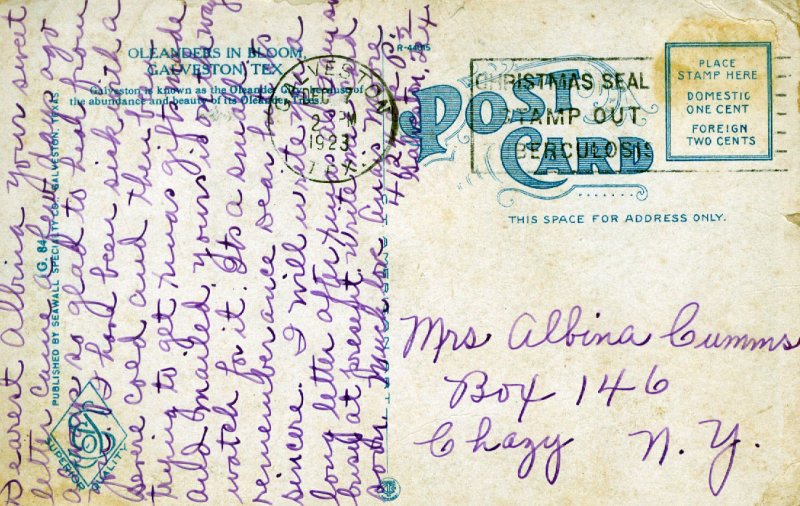 OLEANDERS IN BLOOM,
GALVESTON TEX.
Galveston is known as the Oleander City because of
the abundance and beauty of its Oleander Trees.
R-44
GALVESTON
DEC
2 PM
1923
TEX.
CHRISTMAS SEAL
STAMP OUT
TUBERCULOSIS
POST
CARD
PLACE
STAMP HERE
DOMESTIC
ONE CENT
FOREIGN
TWO CENTS
THIS SPACE FOR ADDRESS ONLY.
Mrs Albina Cumms
Box 146
Chazy N. Y.
Dearest Albina Your sweet
letter came a few days ago
and was so glad to hear from
you. I have been sick with a
severe cold and then I was
trying to get xmas gifts made
and mailed. Yours is on the way
watch for it. It's a small
remembrance dear but is
sincere. I will write a
long letter after xmas
busy at present. Write me real
soon. Much love Anis Marie
Galveston, Tex
G. 84
PUBLISHED BY SEAWALL SPECIALTY CO., GALVESTON, TEXAS
SUPERIOR QUALITY